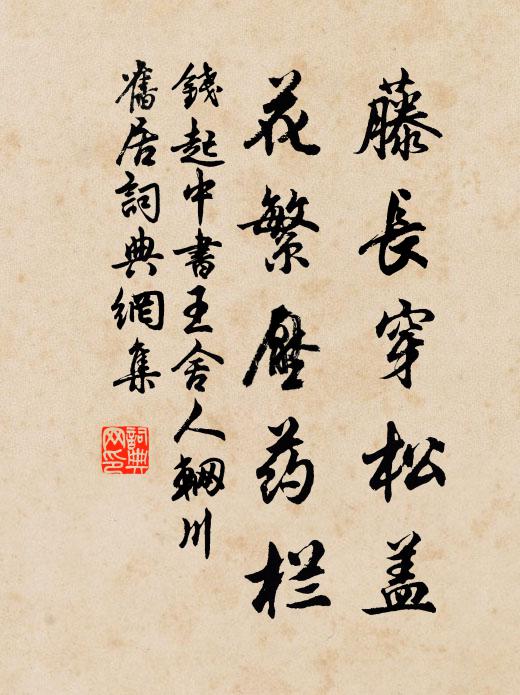 藤長穿松盖
花繁壓药栏
錢起中書王舍人輞川
舊居詞典網集
詞典
网印